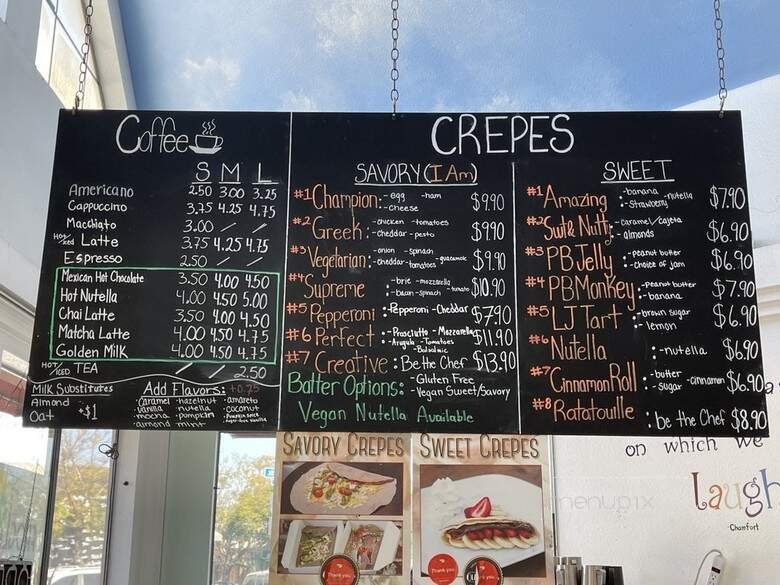 Coffee
S M L
Americano 2.50 3.00 3.25
Cappuccino 3.75 4.25 4.75
Macchiato 3.00 / /
Hot/Iced Latte 3.75 4.25 4.75
Espresso 2.50 / /
Mexican Hot Chocolate 3.50 4.00 4.50
Hot Nutella 4.00 4.50 5.00
Chai Latte 3.50 4.00 4.50
Matcha Latte 4.00 4.50 4.75
Golden Milk 4.00 4.50 4.75
Hot/Iced TEA / / 2.50
Milk Substitutes
Almond
Oat
+$1
Add Flavors: +0.75
caramel -hazelnut -amareto
vanilla -nutella -coconut
mocha -pumpkin
almond mint
CREPES
SAVORY (I Am)
#1 Champion: -egg -ham -cheese $9.90
#2 Greek: -chicken -tomatoes -cheddar -pesto $9.90
#3 Vegetarian: -onion -spinach -cheddar -tomatoes -guacamole $9.90
#4 Supreme -brie -mozzarella -bacon -spinach -tomato $10.90
#5 Pepperoni -Pepperoni -Cheddar $7.90
#6 Perfect -Prosciutto -Mozzarella -Arugula -Tomatoes -Balsamic $11.90
#7 Creative: Be the Chef $13.90
Batter Options: -Gluten Free
-Vegan Sweet/Savory
Vegan Nutella Available
SWEET
#1 Amazing -banana -nutella -strawberry $7.90
#2 Suite Nutty: -caramel/cajeta -almonds $6.90
#3 PB Jelly: -peanut butter -choice of jam $6.90
#4 PB Monkey: -peanut butter -banana $7.90
#5 LJ Tart: -brown sugar -lemon $6.90
#6 Nutella : -nutella $6.90
#7 Cinnamon Roll: -butter -sugar -cinnamon $6.90
#8 Ratatouille : be the Chef $8.90
SAVORY CREPES
SWEET CREPES
Thank you
Thank you
menupix
on which we
Laugh
Chamfort